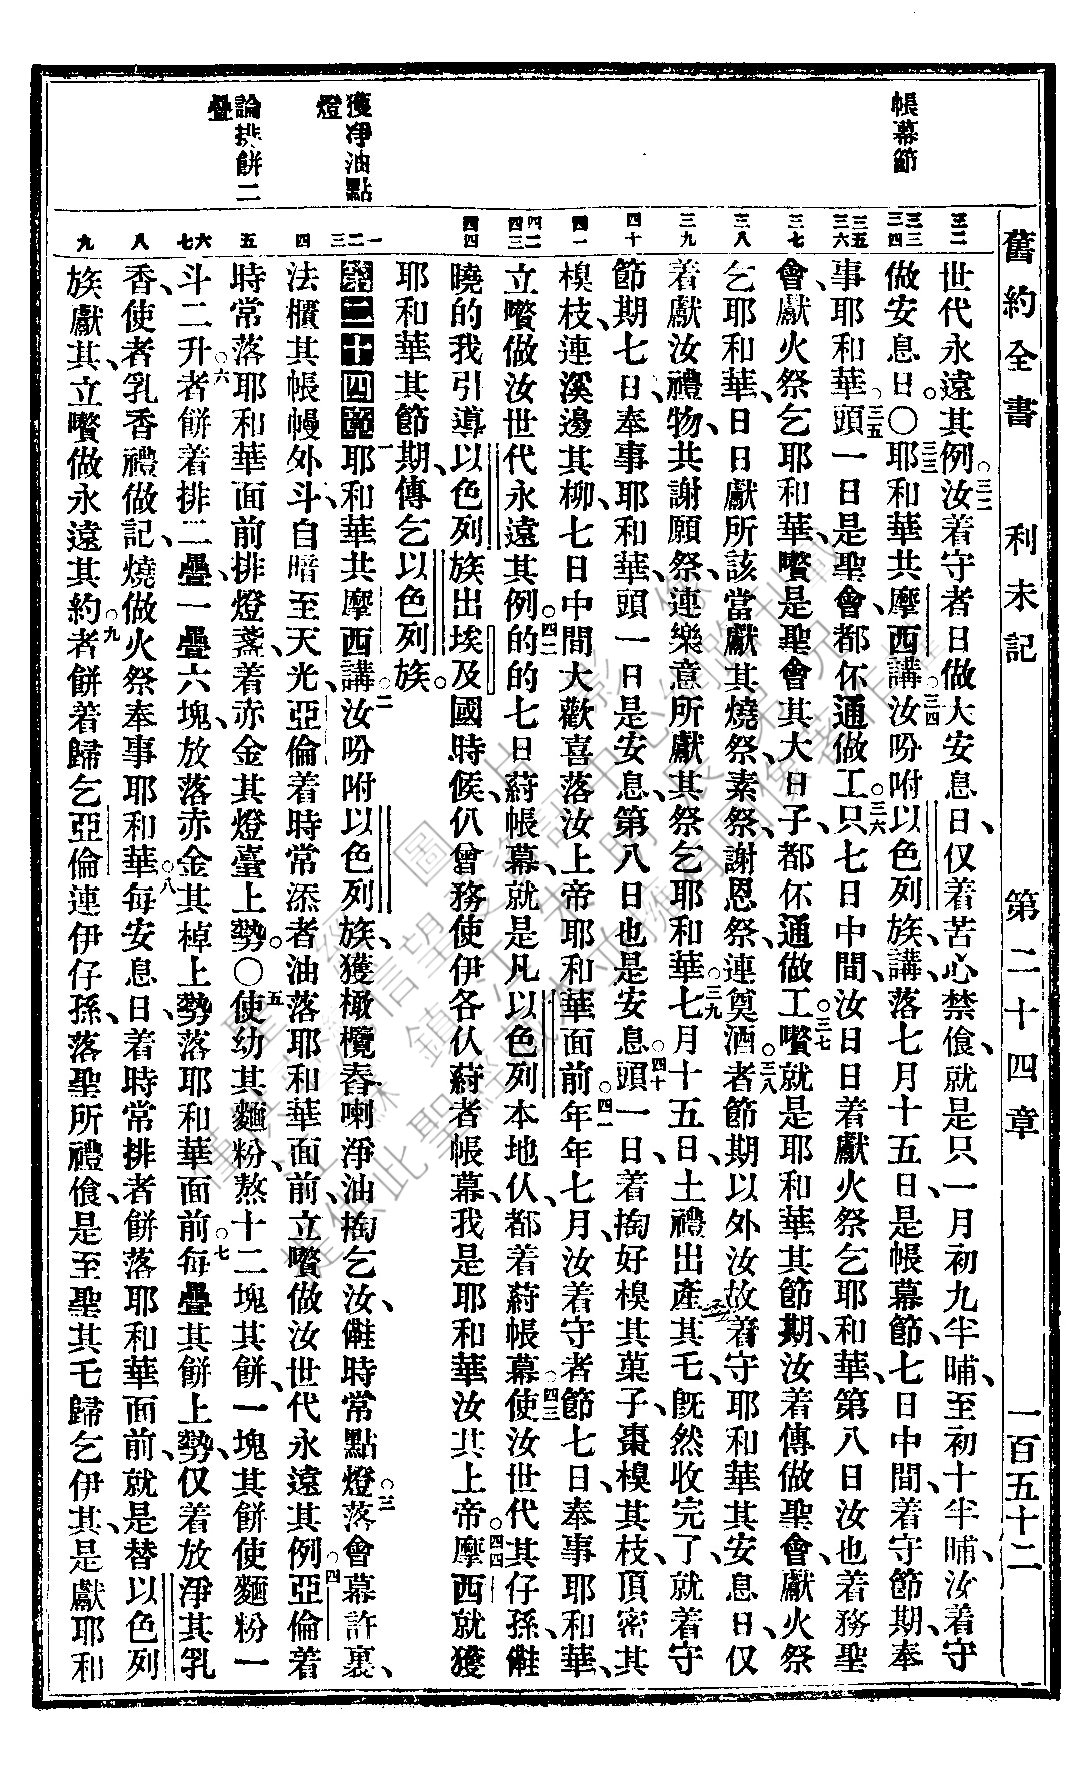 舊約全書 利未記 第二十四章 一百五十二
帳幕節
獲凈油點燈
論排餅二疊
世代永遠其例○三二汝着守者日做大安息日、仅着苦心禁飡、就是只一月初九半晡、至初十半晡、汝着守
做安息日。○三三耶和華共摩西講、○三四汝吩咐以色列族講、落七月十五日、是帳幕節、七日中間、着守節期、奉
事耶和華○三五頭一日是聖會、都伓通做工。○三六只七日中間、汝日日着獻火祭乞耶和華、第八日汝也着務聖
會、獻火祭乞耶和華、嚽是聖會其大日子、都伓通做工○三七嚽就是耶和華其節期、汝着傳做聖會、獻火祭
乞耶和華、日日獻所該當獻其燒祭、素祭、謝恩祭、連奠酒。○三八者節期以外、汝故着守耶和華其安息日、仅
着獻汝禮物、共謝願祭、連樂意所獻其祭、乞耶和華○三九七月十五日、土禮出產其乇、既然收完了、就着守
節期七日、奉事耶和華、頭一日是安息、第八日也是安息○四十頭一日、着掏好楱其菓子、棗楱其枝、頂密其
楱枝、連溪邊其柳、七日中間、大歡喜落汝上帝耶和華面前○四一年年七月、汝着守者節七日、奉事耶和華、
立嚽做汝世代永遠其例。○四二的的七日蒔帳幕、就是凡以色列本地仈、都着蒔帳幕○四三使汝世代其仔孫、僆
曉的我引導以色列族出埃及國時候、仈曾務使伊各仈蒔者帳幕、我是耶和華汝其上帝。○四四摩西就獲
耶和華其節期、傳乞以色列族。
第二十四章 一耶和華共摩西講、○二汝吩咐以色列族、獲橄欖舂喇凈油掏乞汝、僆時常點燈○三落會幕許裏、
法櫃其帳幔外斗、自暗至天光、亞倫着時常添者油、落耶和華面前、立嚽做汝世代永遠其例○四亞倫着
時常落耶和華面前、排燈盞着赤金其燈臺上勢。○五使幼其麵粉、熬十二塊其餅、一塊其餅、使麵粉一
斗二升○六者餅着排二疊、一疊六塊、放落赤金其棹上勢、落耶和華面前○七每疊其餅上勢、仅着放淨其乳
香、使者乳香禮做記、燒做火祭、奉事耶和華○八每安息日、着時常排者餅、落耶和華面前、就是替以色列
族獻其、立嚽做永遠其約○九者餅着歸乞亞倫連伊仔孫、落聖所禮飡、是至聖其乇歸乞伊其、是獻耶和